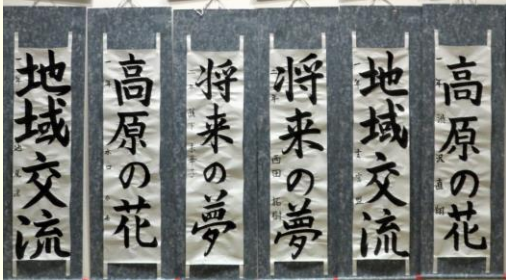 地域交流
高原の花
将来の夢
将来の夢
西田拓樹
地域交流
高原の花